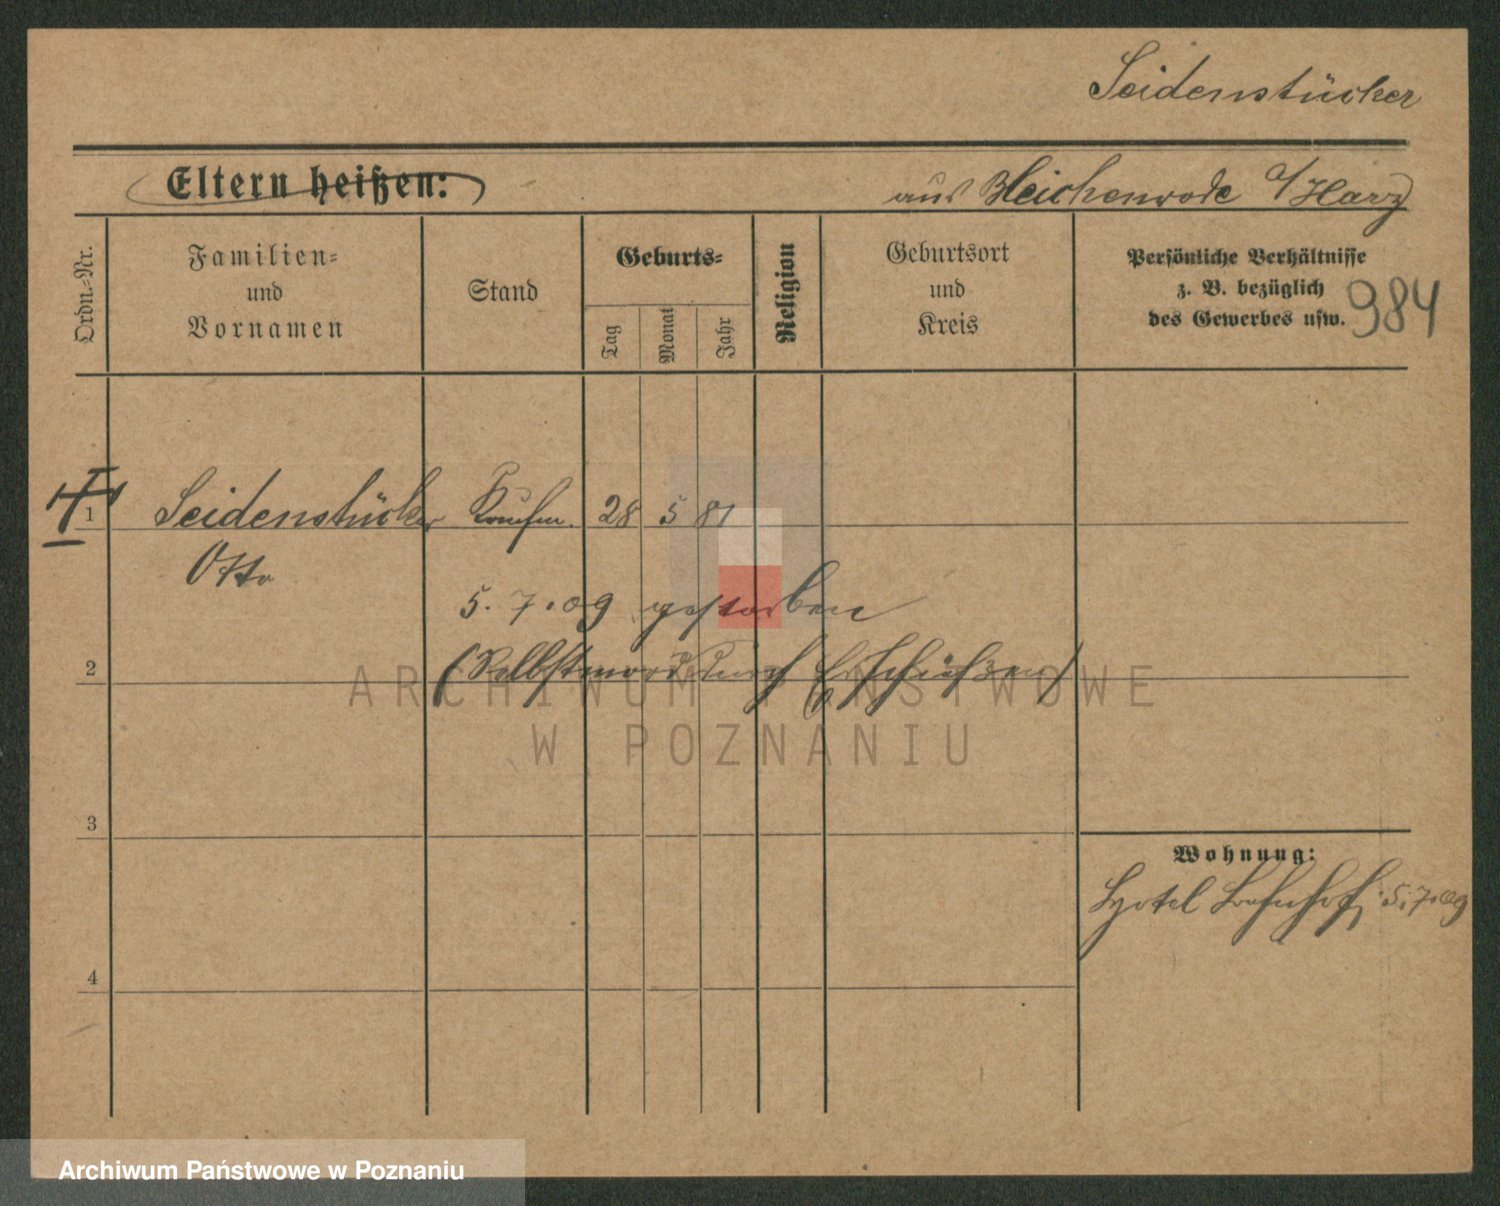 Seidenstücker
Eltern heißen:
aus Bleichenrode a/Harz
Ordn.-Nr.
Familien-
und
Vornamen
Stand
Geburts-
Tag
Monat
Jahr
Religion
Geburtsort
und
Kreis
Persönliche Verhältnisse
z. B. bezüglich
des Gewerbes usw.
984
1
Seidenstücker Kaufm. 28 5 81
Otto
5. 7. 09 gestorben
2
(Selbstmord durch Erschießen)
ARCHIWUM PAŃSTWOWE
W POZNANIU
3
Wohnung:
Hotel Bahnhof, 5.7.09
4
Archiwum Państwowe w Poznaniu